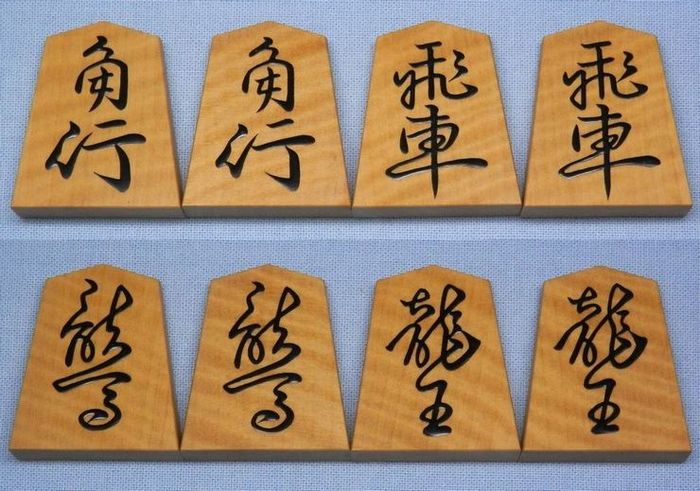 角行
角行
飛車
飛車
龍馬
龍馬
龍王
龍王